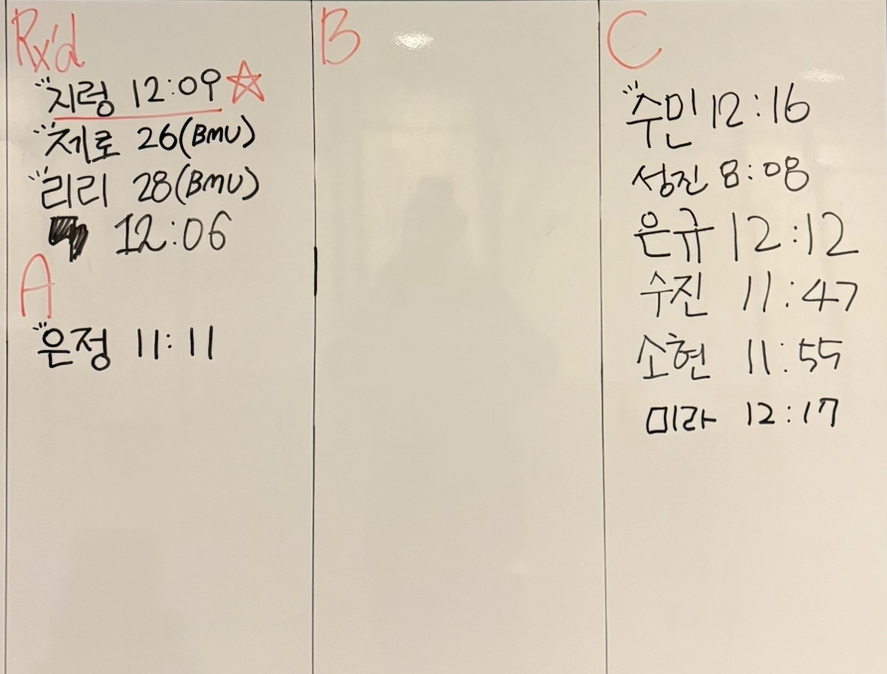 Rx'd
지렁 12:09
제로 26(BMU)
리리 28(BMU)
12:06
A
은정 11:11
B
C
수민 12:16
성진 8:08
은규 12:12
수진 11:47
소현 11:55
미라 12:17